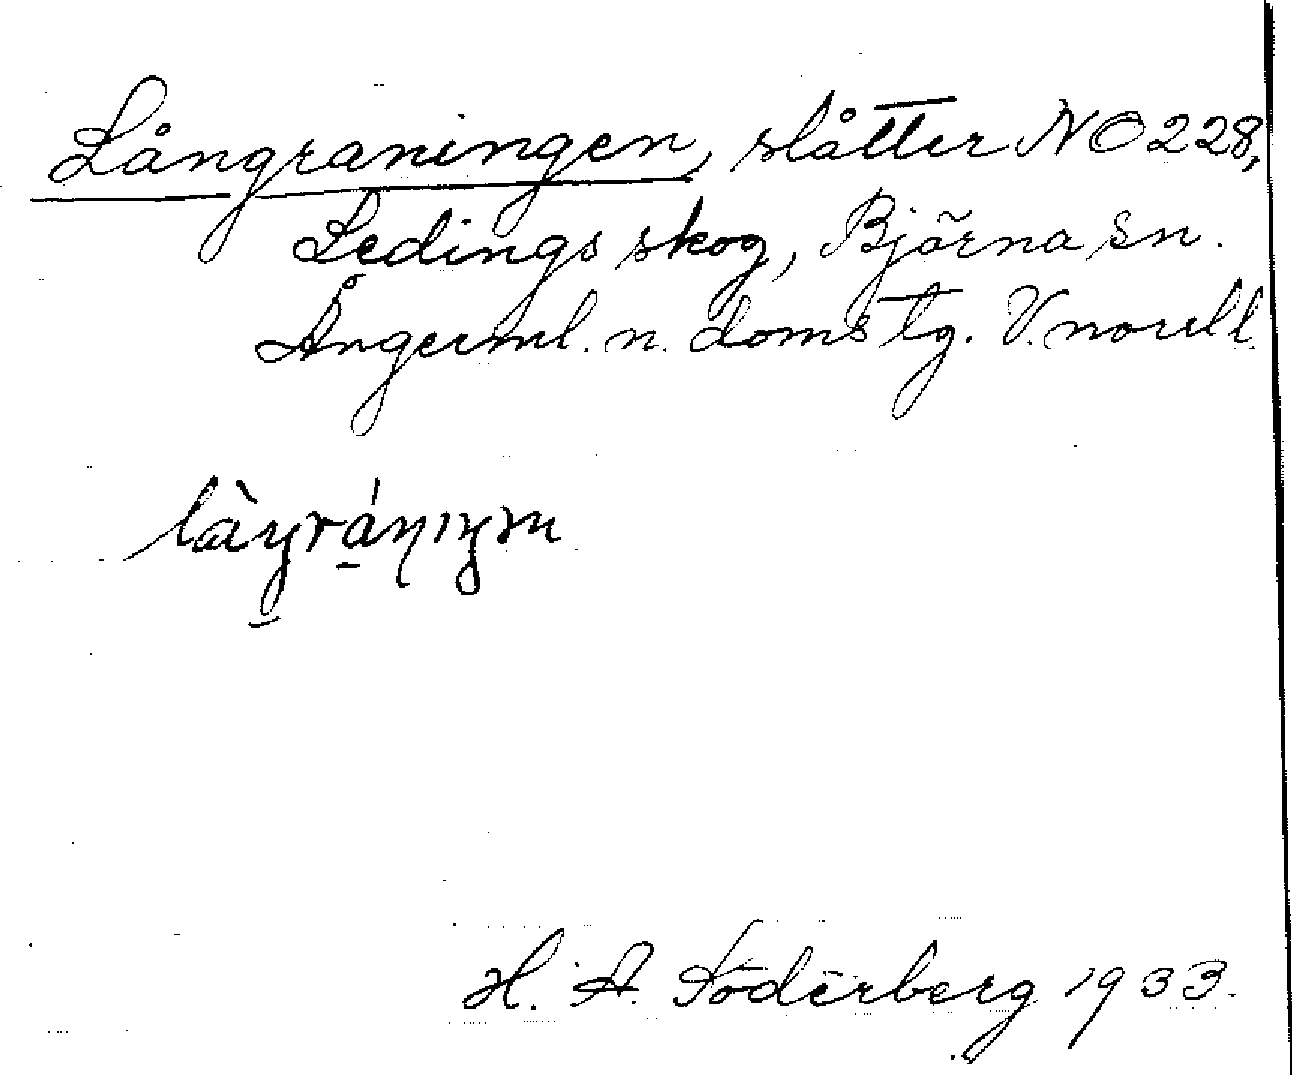 Långraningen, slåtter NO 228,
Ledings skog, Björna sn.
Ångerml. n. doms tg. V.norrl.
làŋránıŋm
H. A. Söderberg 1933.